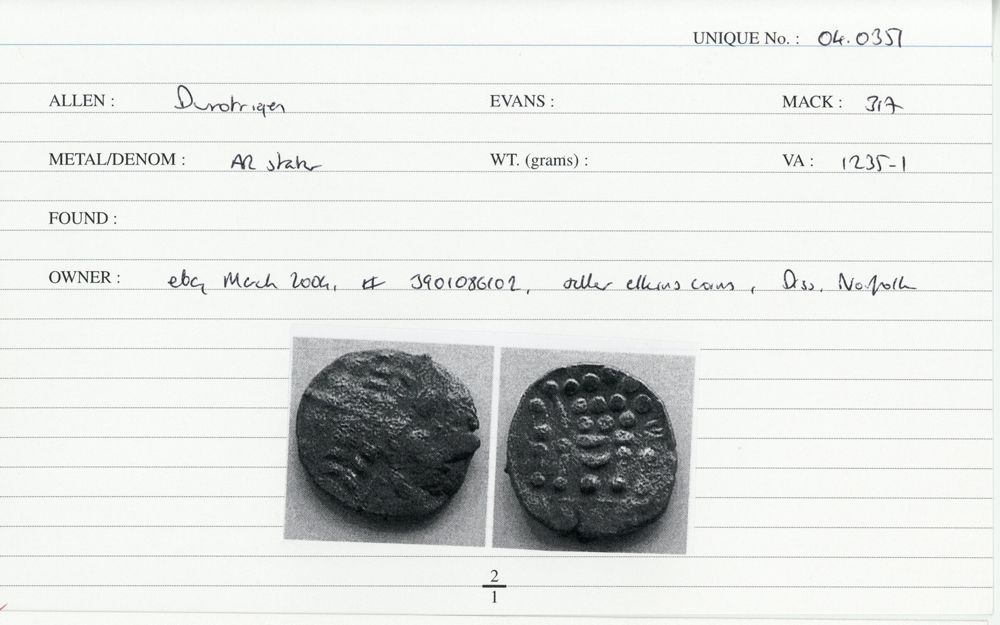 UNIQUE No. : 04.0351
ALLEN : Durotriges EVANS : MACK : 317
METAL/DENOM : AR stater WT. (grams) : VA : 1235-1
FOUND :
OWNER : ebay March 2004, # 3901086102, seller elkins coins, Diss, Norfolk
2
1